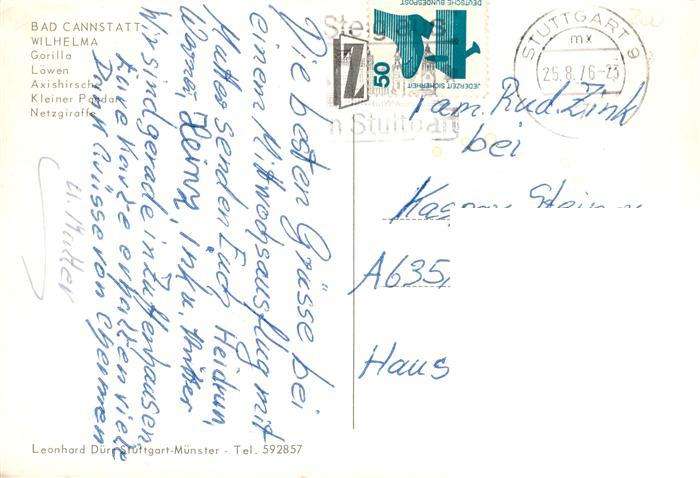 BAD CANNSTATT
WILHELMA
Gorilla
Löwen
Axishirsche
Kleiner Panda
Netzgiraffe
Die besten Grüsse bei
einem Mittwochsausflug mit
Mutter senden Euch Heidrun,
Werner, Heinz, Ink u. Mutter
Wir sind gerade in Zuffenhausen
Eure Karte erhalten viele
Dank Grüsse von
u. Mutter
Leonhard Dürr Stuttgart-Münster - Tel. 592857
Steig
in Stuttgart
50
DEUTSCHE BUNDESPOST
JEDERZEIT SICHERHEIT
STUTTGART 9
mx
25.8.76-23
Fam. Rud. Zink
bei
A635
Haus